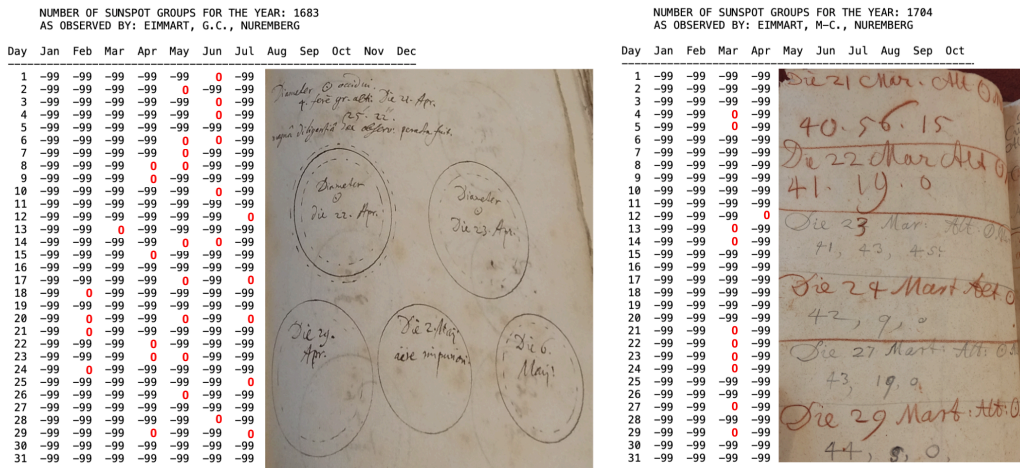 NUMBER OF SUNSPOT GROUPS FOR THE YEAR: 1683
AS OBSERVED BY: EIMMART, G.C., NUREMBERG
Day Jan Feb Mar Apr May Jun Jul Aug Sep Oct Nov Dec
1 -99 -99 -99 -99 -99 0 -99
2 -99 -99 -99 -99 0 -99 -99
3 -99 -99 -99 -99 -99 0 -99
4 -99 -99 -99 -99 -99 0 -99
5 -99 -99 -99 -99 -99 -99 -99
6 -99 -99 -99 -99 0 0 -99
7 -99 -99 -99 -99 0 -99 -99
8 -99 -99 -99 0 0 -99 -99
9 -99 -99 -99 0 -99 -99 -99
10 -99 -99 -99 -99 -99 0 -99
11 -99 -99 -99 -99 -99 -99 -99
12 -99 -99 -99 -99 -99 -99 0
13 -99 -99 0 -99 -99 -99 -99
14 -99 -99 -99 -99 0 0 -99
15 -99 -99 -99 0 -99 -99 -99
16 -99 -99 -99 -99 -99 -99 -99
17 -99 -99 -99 -99 0 -99 0
18 -99 0 -99 -99 -99 -99 -99
19 -99 -99 -99 -99 -99 -99 -99
20 -99 0 -99 -99 0 -99 0
21 -99 0 -99 -99 -99 -99 -99
22 -99 -99 -99 0 -99 -99 -99
23 -99 -99 -99 0 0 -99 -99
24 -99 0 -99 -99 -99 -99 -99
25 -99 -99 -99 -99 -99 -99 0
26 -99 -99 -99 -99 0 -99 -99
27 -99 -99 -99 -99 -99 -99 -99
28 -99 -99 -99 -99 -99 0 -99
29 -99 -99 -99 0 -99 -99 0
30 -99 -99 -99 -99 -99 -99 -99
31 -99 -99 -99 -99 -99 -99 -99
Diameter ☉
Die 21. Apr.
25. 22.
Diameter
☉
die 22. Apr.
Diameter
☉
Die 23. Apr.
Die 29.
Apr.
Die 2. Maij
Die 6.
Maij.
NUMBER OF SUNSPOT GROUPS FOR THE YEAR: 1704
AS OBSERVED BY: EIMMART, M-C., NUREMBERG
Day Jan Feb Mar Apr May Jun Jul Aug Sep Oct
1 -99 -99 -99 -99
2 -99 -99 -99 -99
3 -99 -99 -99 -99
4 -99 -99 0 -99
5 -99 -99 0 -99
6 -99 -99 -99 -99
7 -99 -99 -99 -99
8 -99 -99 -99 -99
9 -99 -99 -99 -99
10 -99 -99 -99 -99
11 -99 -99 -99 -99
12 -99 -99 -99 0
13 -99 -99 0 -99
14 -99 -99 0 -99
15 -99 -99 -99 -99
16 -99 -99 -99 -99
17 -99 -99 -99 -99
18 -99 -99 -99 -99
19 -99 -99 -99 -99
20 -99 -99 -99 -99
21 -99 -99 0 -99
22 -99 -99 0 -99
23 -99 -99 0 -99
24 -99 -99 0 -99
25 -99 -99 -99 -99
26 -99 -99 -99 -99
27 -99 -99 0 -99
28 -99 -99 -99 -99
29 -99 -99 0 -99
30 -99 -99 -99 -99
31 -99 -99 -99 -99
Die 21 Mar. Alt ☉
40. 56. 15
Die 22 Mar Alt ☉
41. 19. 0
Die 23 Mar. Alt: ☉
41, 43, 45:
Die 24 Mart Alt ☉
42, 9, 0
Die 27 Mart: Alt: ☉
43, 19, 0.
Die 29 Mart: Alt: ☉
44, 8, 0.